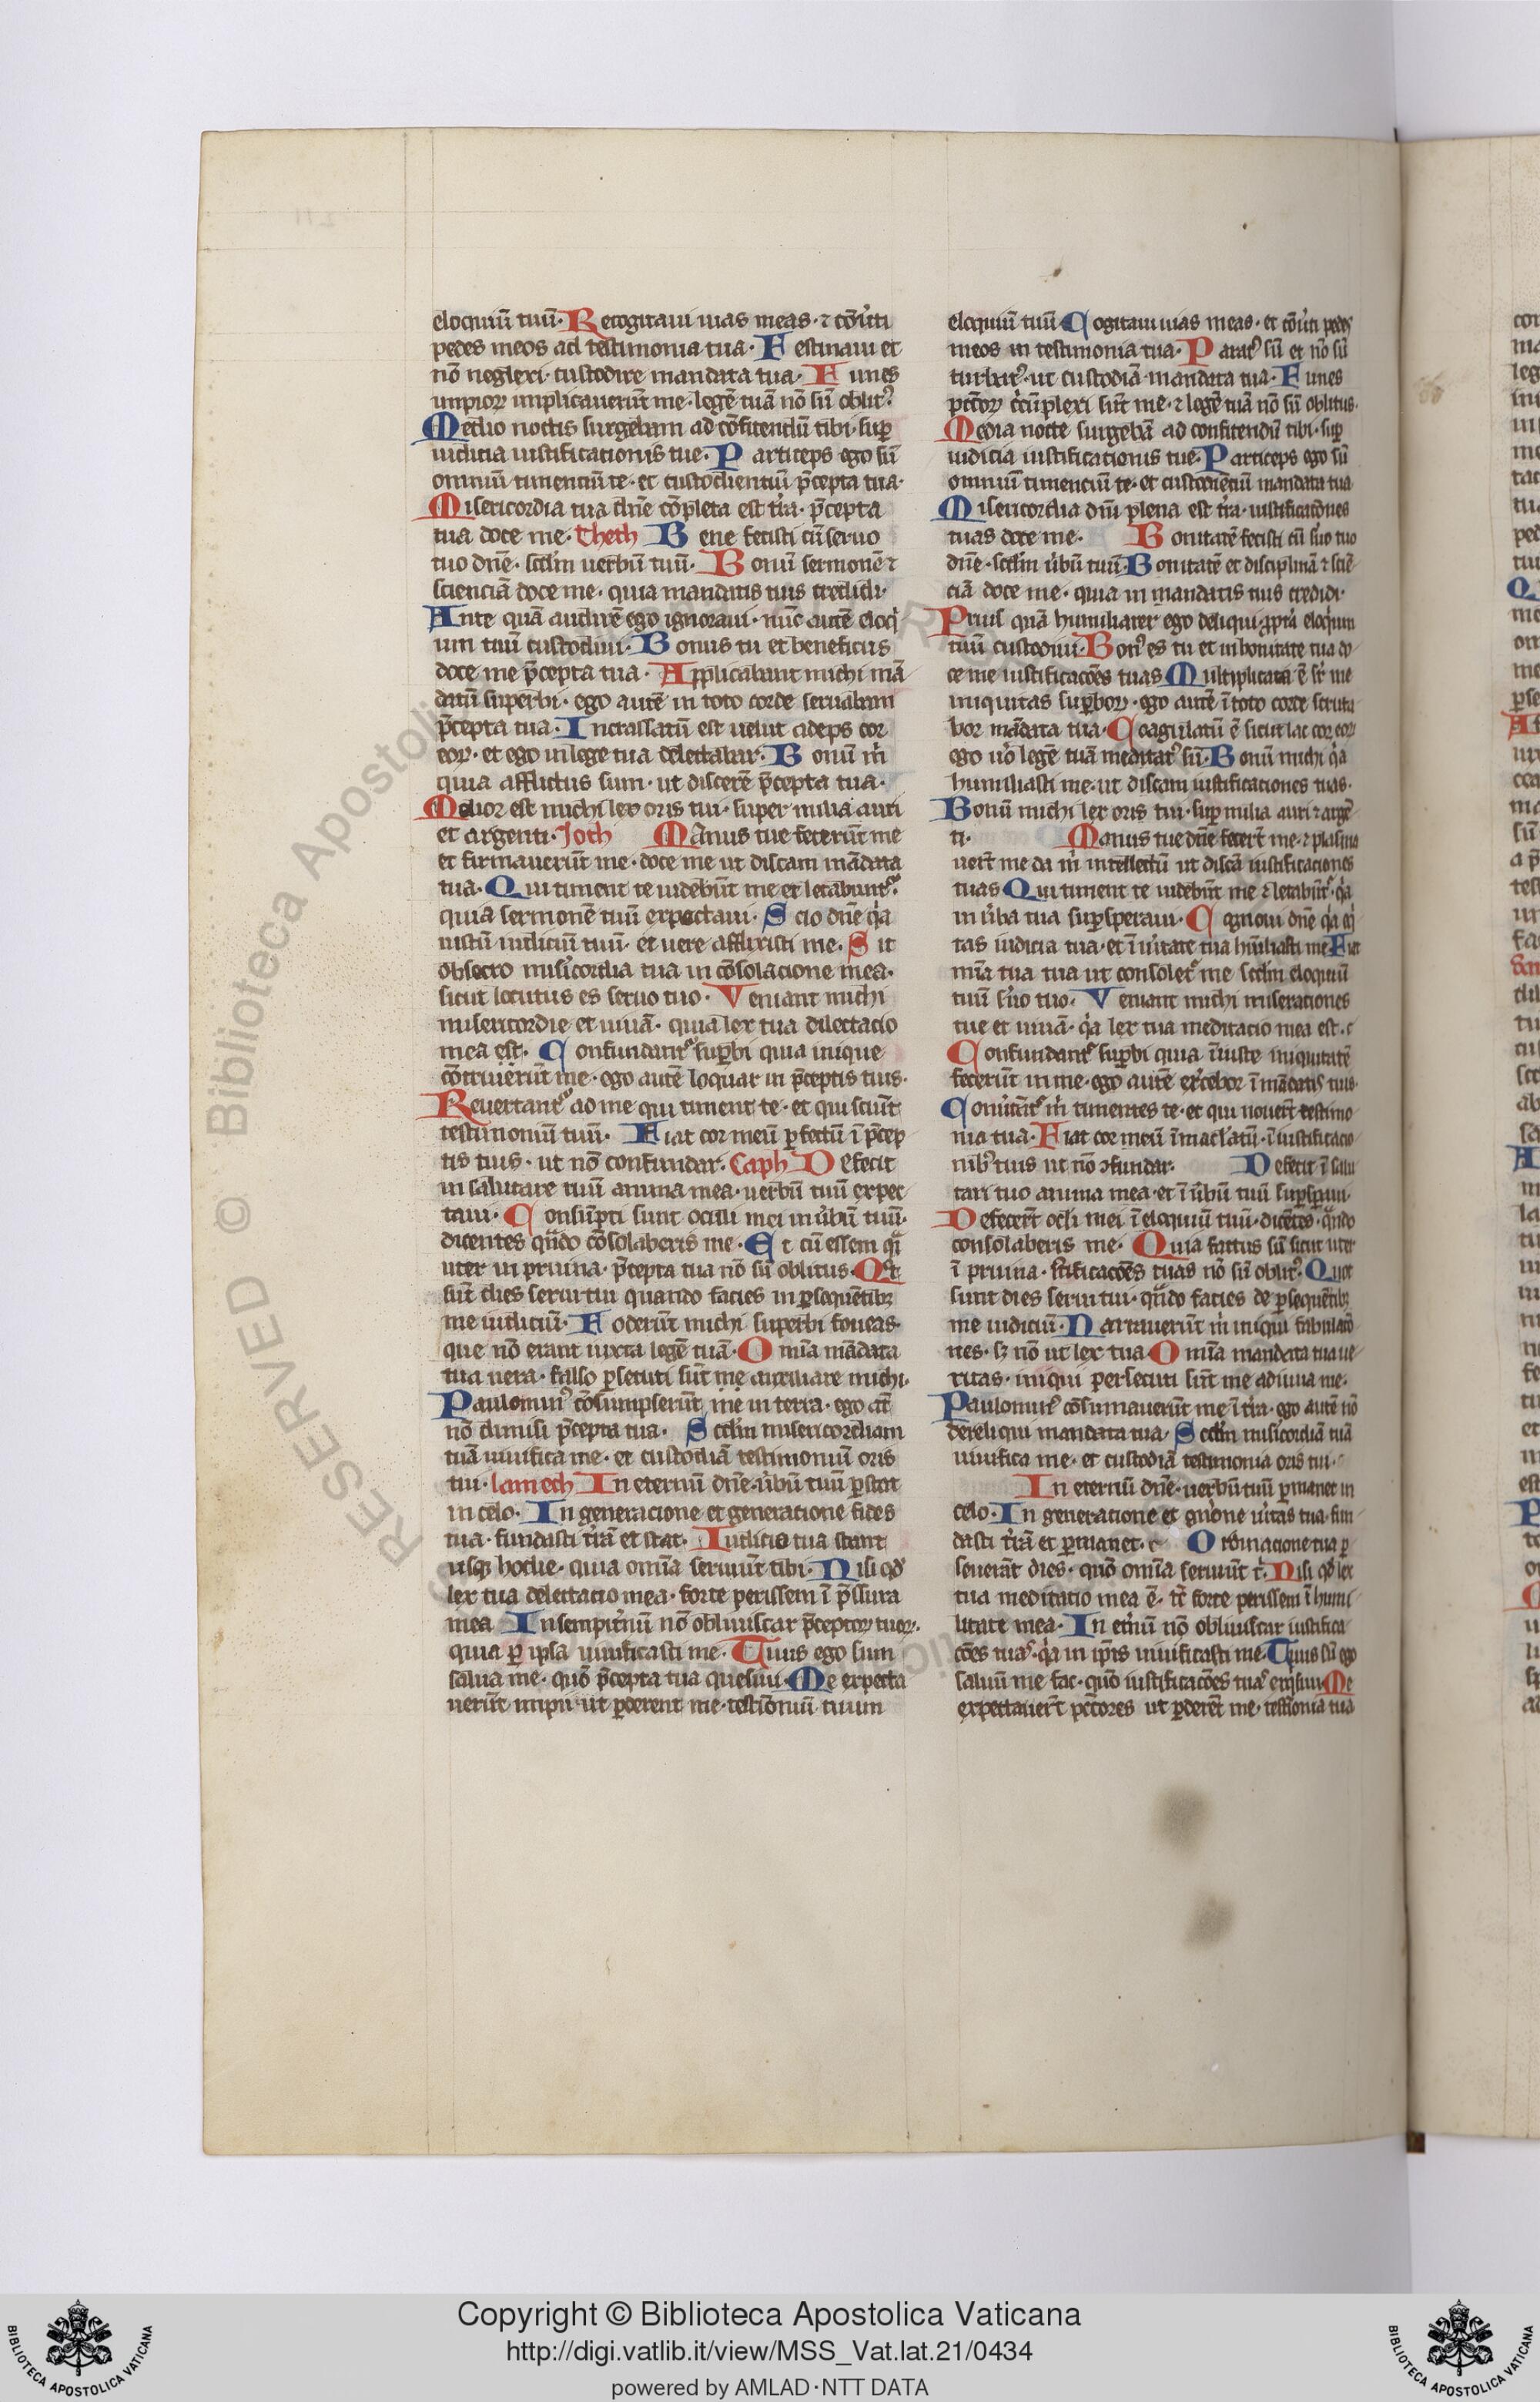 eloquiũ tuũ· Recogitaui uias meas· ⁊ cõũti
pedes meos ad testimonia tua· Festinaui et
nõ neglexi· custodire mandata tua· Funes
impioꝝ implicauerũt me· legẽ tuã nõ sũ oblitꝰ·
Medio noctis surgebam ad cõfitendũ tibi· suꝑ
iudicia iustificationis tue· Particeps ego sũ
omniũ timenciũ te· et custodientiũ p̃cepta tua·
Misericordia tua dñe cõpleta est tr̃a· p̃cepta
tua doce me· Theth Bene fecisti cũ seruo
tuo dñe· scd̃m uerbũ tuũ· Bonũ sermonẽ ⁊
scienciã doce me· quia mandatis tuis credidi·
Ante quã audirẽ ego ignoraui· nũc autẽ eloq̾
um tuũ custodiui· Bonus tu et beneficus
doce me p̃cepta tua· Applicabant michi mã
datũ superbi· ego autẽ in toto corde seruabam
p̃cepta tua· Incrassatũ est uelut adeps cor
eoꝝ· et ego in lege tua delectabar· Bonũ m̃
quia afflictus sum· ut discerẽ p̃cepta tua·
Melior est michi lex oris tui· super milia auri
et argenti· Joth Manus tue fecerũt me
et firmauerũt me· doce me ut discam mãdata
tua· Qui timent te uidebũt me et letabuntᷣ·
quia sermonẽ tuũ expectaui· Scio dñe q̾a
iustũ iudiciũ tuũ· et uere afflixisti me· Sit
obsecro mis̃icordia tua in cõsolacione mea·
sicut locutus es seruo tuo· Veniant michi
misericordie et uiuã· quia lex tua dilectacio
mea est· Confundantᷣ suꝑbi quia inique
cõtriuerũt me· ego autẽ loquar in p̃ceptis tuis·
Reuertantᷣ ad me qui timent te· et qui sciũt
testimoniũ tuũ· Fiat cor meũ ꝑfectũ ĩ p̃cep
tis tuis· ut nõ confundar· Caph Defecit
in salutare tuũ anima mea· uerbũ tuũ expec
taui· Consũpti sunt oculi mei in ũbũ tuũ·
dicentes qñdo cõsolaberis me· Et cũ essem q̃i
uter in pruina· p̃cepta tua nõ sũ oblitus· Qͦt
sũt dies serui tui quando facies in ꝑsequẽtibꝫ
me iudiciũ· Foderũt michi superbi foueas·
que nõ erant iuxta legẽ tuã· Omĩa mãdata
tua uera· falso ꝑsecuti sũt me auxiliare michi·
Paulominꝰ cõsumpserũt me in terra· ego aũt
nõ dimisi p̃cepta tua· Scd̃m misericordiam
tuã uiuifica me· et custodiã testimoniũ oris
tui· lamech In eternũ dñe· ũbũ tuũ ꝑstat
in celo· In generacione et generatione fides
tua· fundasti tr̃ã et stat· Iudicio tua stant
usqꝫ hodie· quia omĩa seruiũt tibi· Nisi qd̾
lex tua delectacio mea· forte perissem ĩ p̃ssura
mea In sempit̃nũ nõ obliuiscar p̃ceptoꝝ tuoꝝ·
quia ꝑ ipsa uiuificasti me· Tuus ego sum
salua me· quõ p̃cepta tua quesiui· Me expecta
uerũt impii ut ꝑderent me· testĩoniũ tuum
eloquiũ tuũ Cogitaui uias meas· et cõũti pedes
meos in testimonia tua· Paratꝰ sũ et nõ sũ
turbatꝰ· ut custodiã mandata tua· Funes
pctõꝝ c̃cũplexi sũt me· ⁊ legẽ tuã nõ sũ oblitus·
Media nocte surgebã ad confitendũ tibi· suꝑ
iudicia iustificationis tue· Particeps ego sũ
omniũ timenciũ te· et custodiẽciũ mandata tua
Misericordia dñi plena est tr̃a· iustificatiões
tuas doce me· Bonitatẽ fecisti cũ s̃uo tuo
dñe· scd̃m ũbũ tuũ· Bonitatẽ et disciplinã ⁊ sciẽ
ciã doce me· quia in mandatis tuis credidi·
Priusꝗ̃ quã humiliarer ego deliqui· ꝓpt̾a eloq̾um
tuũ custodiui· Bonꝰ es tu et in bonitate tua do
ce me iustificacões tuas Multiplicata ẽ sr̃ me
iniquitas suꝑboꝝ· ego autẽ ĩ toto corde scruta
bor mãdata tua· Coagulatũ ẽ sicut lac cor eoꝝ
ego ũo legẽ tuã meditatꝰ sũ· Bonũ michi q̾a
humiliasti me· ut discam iustificationes tuas·
Bonũ michi lex oris tui· suꝑ milia auri ⁊ argẽ
ti· Manus tue dñe fecer̃t me· ⁊ plasma
uer̃t me da m̃ intellectũ ut discã iustificaciones
tuas Qui timent te uidebũt me ⁊ letabũtᷣ· q̾a
in ũba tua suꝑsperaui· Cognoui dñe q̾a eq̾
tas iudicia tua· et ĩ ũitate tua hũiliasti me Fiat
mĩa tua tua ut consoletᷣ me scd̃m eloquiũ
tuũ s̃uo tuo· Veniant michi miserationes
tue et uiuã· q̾a lex tua meditacio mea est·
Confundantᷣ suꝑbi quia ĩiuste iniquitatẽ
fecerũt in me· ego autẽ ex̃cebor ĩ mãdatis tuis·
Conũtãtᷣ m̃ timentes te· et qui nouer̃t testimo
nia tua· Fiat cor meũ ĩmacl̃atũ· ĩ iustificacio
nibꝰ tuis ut nõ ꝯfundar· Defecit ĩ salu
tari tuo anima mea· et ĩ ũbũ tuũ suꝑsꝑaui·
Defecer̃t ocl̃i mei ĩ eloquiũ tuũ· dicẽtes· qñdo
consolaberis me· Quia factus sũ sicut uter
ĩ pruina· iustificacões tuas nõ sũ oblitꝰ· Quot
sunt dies serui tui· qñdo facies de ꝑsequẽtibꝫ
me iudiciũ· Narrauerũt m̃ iniqui fabulatõ
nes· sꝫ nõ ut lex tua· Omĩa mandata tua ue
ritas· iniqui persecuti sũt me adiuua me·
Paulominꝰ cõsumauerũt me ĩ tr̃a· ego autẽ nõ
dereliqui mandata tua· Scd̃m mis̃icordiã tuã
uiuifica me· et custodiã testimonia oris tui·
In eternũ dñe· uerbũ tuũ ꝑmanet in
celo· In generatione et gñione ũitas tua· fun
dasti tr̃ã et ꝑmanet· Ordinacione tua ꝑ
seuerãt dies· quõ omĩa seruiũt t̃· Nisi qd̾ lex
tua meditatio mea ẽ· tc̃ forte perissem ĩ humi
litate mea· In et̃nũ nõ obliuiscar iustifica
cões tuas· q̾a in ip̃is uiuificasti me· Tuus sũ ego
saluũ me fac· quõ iustificacões tuas exq̾siui· Me
expectauer̃t pctõres ut ꝑderẽt me· testĩonia tua
RESERVED © Biblioteca Apostolica
Copyright © Biblioteca Apostolica Vaticana
http://digi.vatlib.it/view/MSS_Vat.lat.21/0434
powered by AMLAD·NTT DATA
BIBLIOTECA APOSTOLICA VATICANA
BIBLIOTECA APOSTOLICA VATICANA